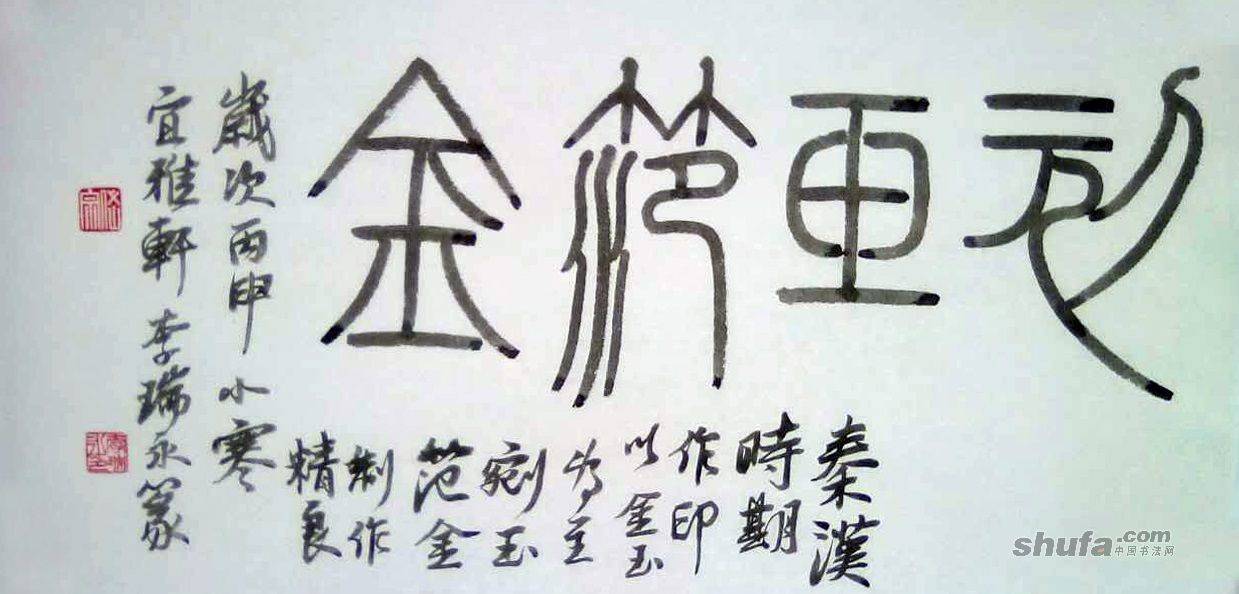 刓笵金
秦漢
時期
作印
以金玉
为主
剜玉
范金
制作
精良
歲次丙申小寒
宜雅軒李瑞永篆
shufa.com
中国书法网